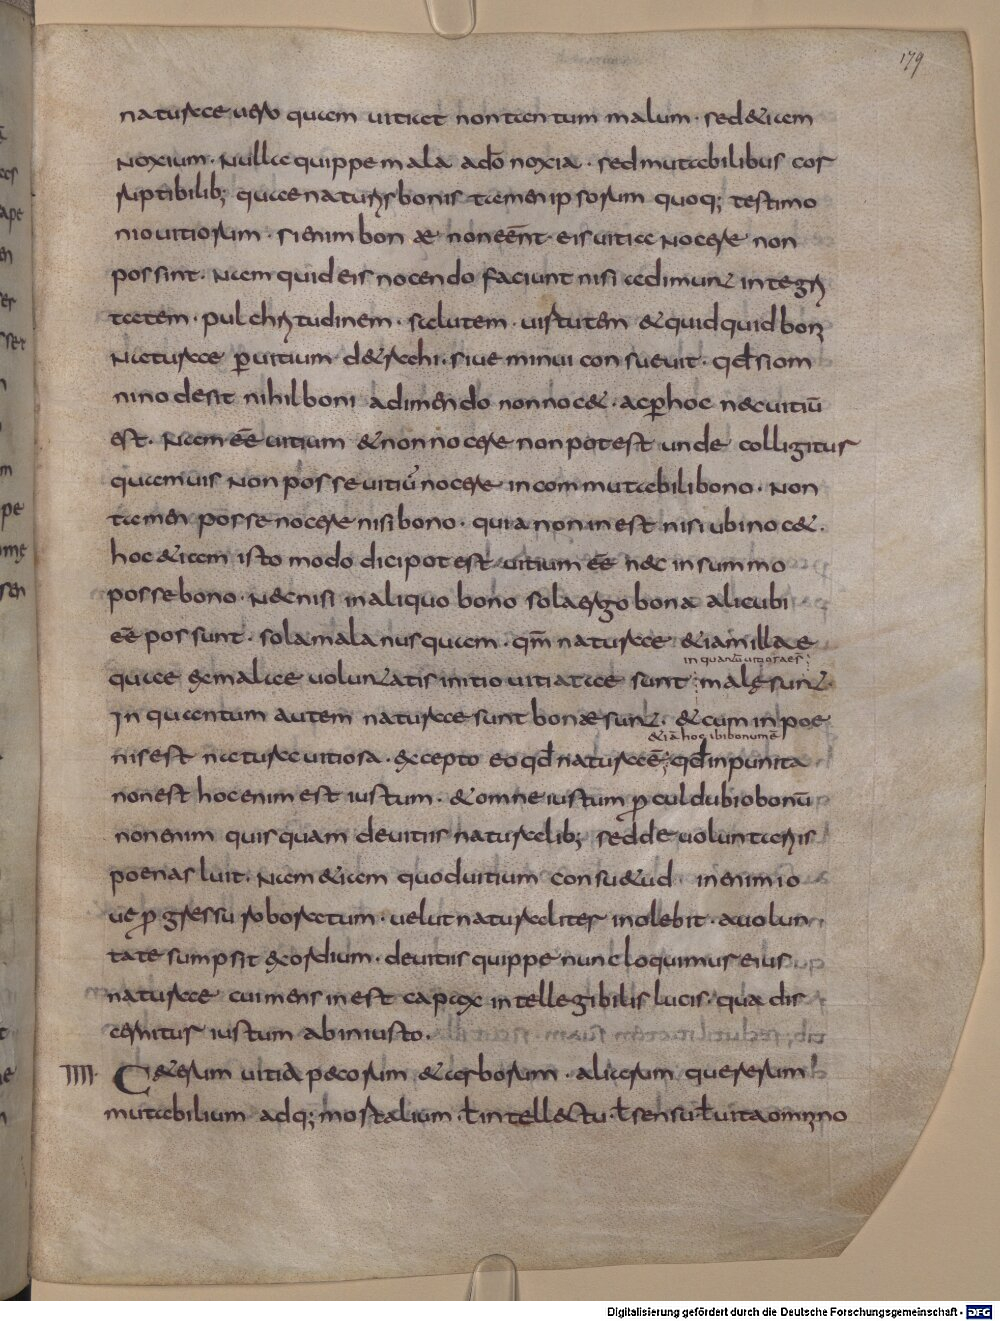 179
naturae uero quam uitiat non tantum malum · sed &iam
noxium · Nullae quippe mala dō noxia · sed mutabilibus cor
ruptibilib; quae naturis bonis tamen ipsorum quoq; testimo
nio uitiorum · si enim bonae non eēnt · eis uitia nocere non
possint · Nam quid eis nocendo faciunt nisi adimunt integri
tatem · pulchritudinem · salutem · uirtutem & quidquid boni
naturae p uitium d&rahi · siue minui consueuit · qd si om
nino desit nihil boni adimendo non noc& · ac p hoc nec uitiū
est · Nam eē uitium & non nocere non potest unde colligitur
quamuis non posse uitiū nocere incommutabili bono · Non
tamen posse nocere nisi bono · quia non inest nisi ubi noc& ·
hoc &iam isto modo dici potest uitium eē nec in summo
posse bono · Nec nisi in aliquo bono sola ergo bona alicubi
eē possunt · sola mala nusquam · qm̄ naturae &iam illae
in quantū uitiosae s̄
quae ex malae uoluntatis initio uitiatae sunt male sunt ·
In quantum autem naturae sunt bonae sunt · & cum in poe
&iā hoc ibi bonum ē
nis est natura uitiosa · excepto eo qd natura ē; qd inpunita
non est hoc enim est iustum · & omne iustum procul dubio bonū
non enim quisquam de uitiis naturalib; sed de uoluntariis
poenas luit · Nam &iam quod uitium consu&ud · in enim io
ue progressu roboratum · uelut naturaliter inolebit · a uolun
tate sumpsit exordium · de uitiis quippe nunc loquimur eius
naturae cui mens inest capax intellegibilis lucis · qua dis
cernitur iustum ab iniusto ·
IIII · C&erum uitia pecorum & arborum · aliarum que rerum
mutabilium adq; mortalium · ł intellectu · ł sensu ł uita omnino
Digitalisierung gefördert durch die Deutsche Forschungsgemeinschaft - DFG